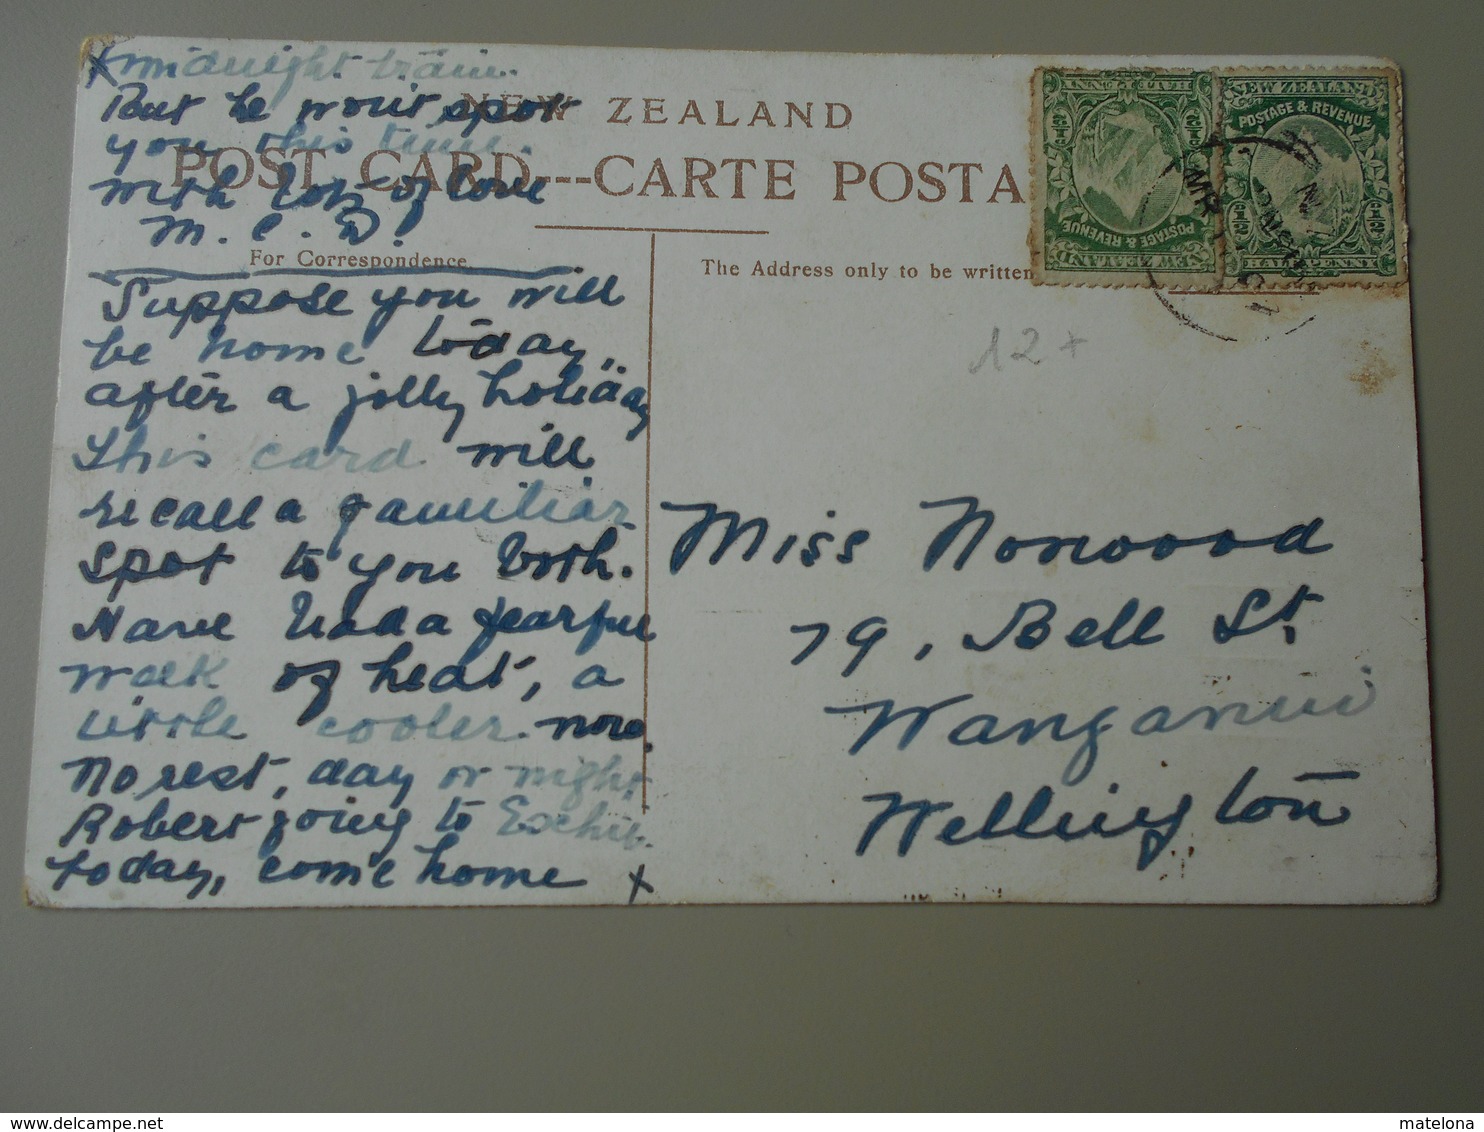 x midnight train.
But he won't spot
you this time.
With lots of love
M. C. D.
NEW ZEALAND
POST CARD---CARTE POSTA
For Correspondence.
The Address only to be written
Suppose you will
be home today,
after a jolly holiday
This card will
recall a familiar
spot to you both.
Have had a fearful
week of heat, a
little cooler now.
No rest, day or night.
Robert going to
today, come home x
Miss Norwood
79, Bell St.
Wanganui
Wellington
12+
NEW ZEALAND
POSTAGE & REVENUE
1/2 1/2
HALF PENNY
NEW ZEALAND
POSTAGE & REVENUE
1/2 1/2
HALF PENNY
delcampe.net
matelona